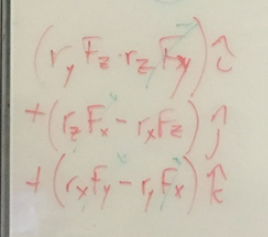 (r_y F_z - r_z F_y) î
+ (r_z F_x - r_x F_z) ĵ
+ (r_x F_y - r_y F_x) k̂